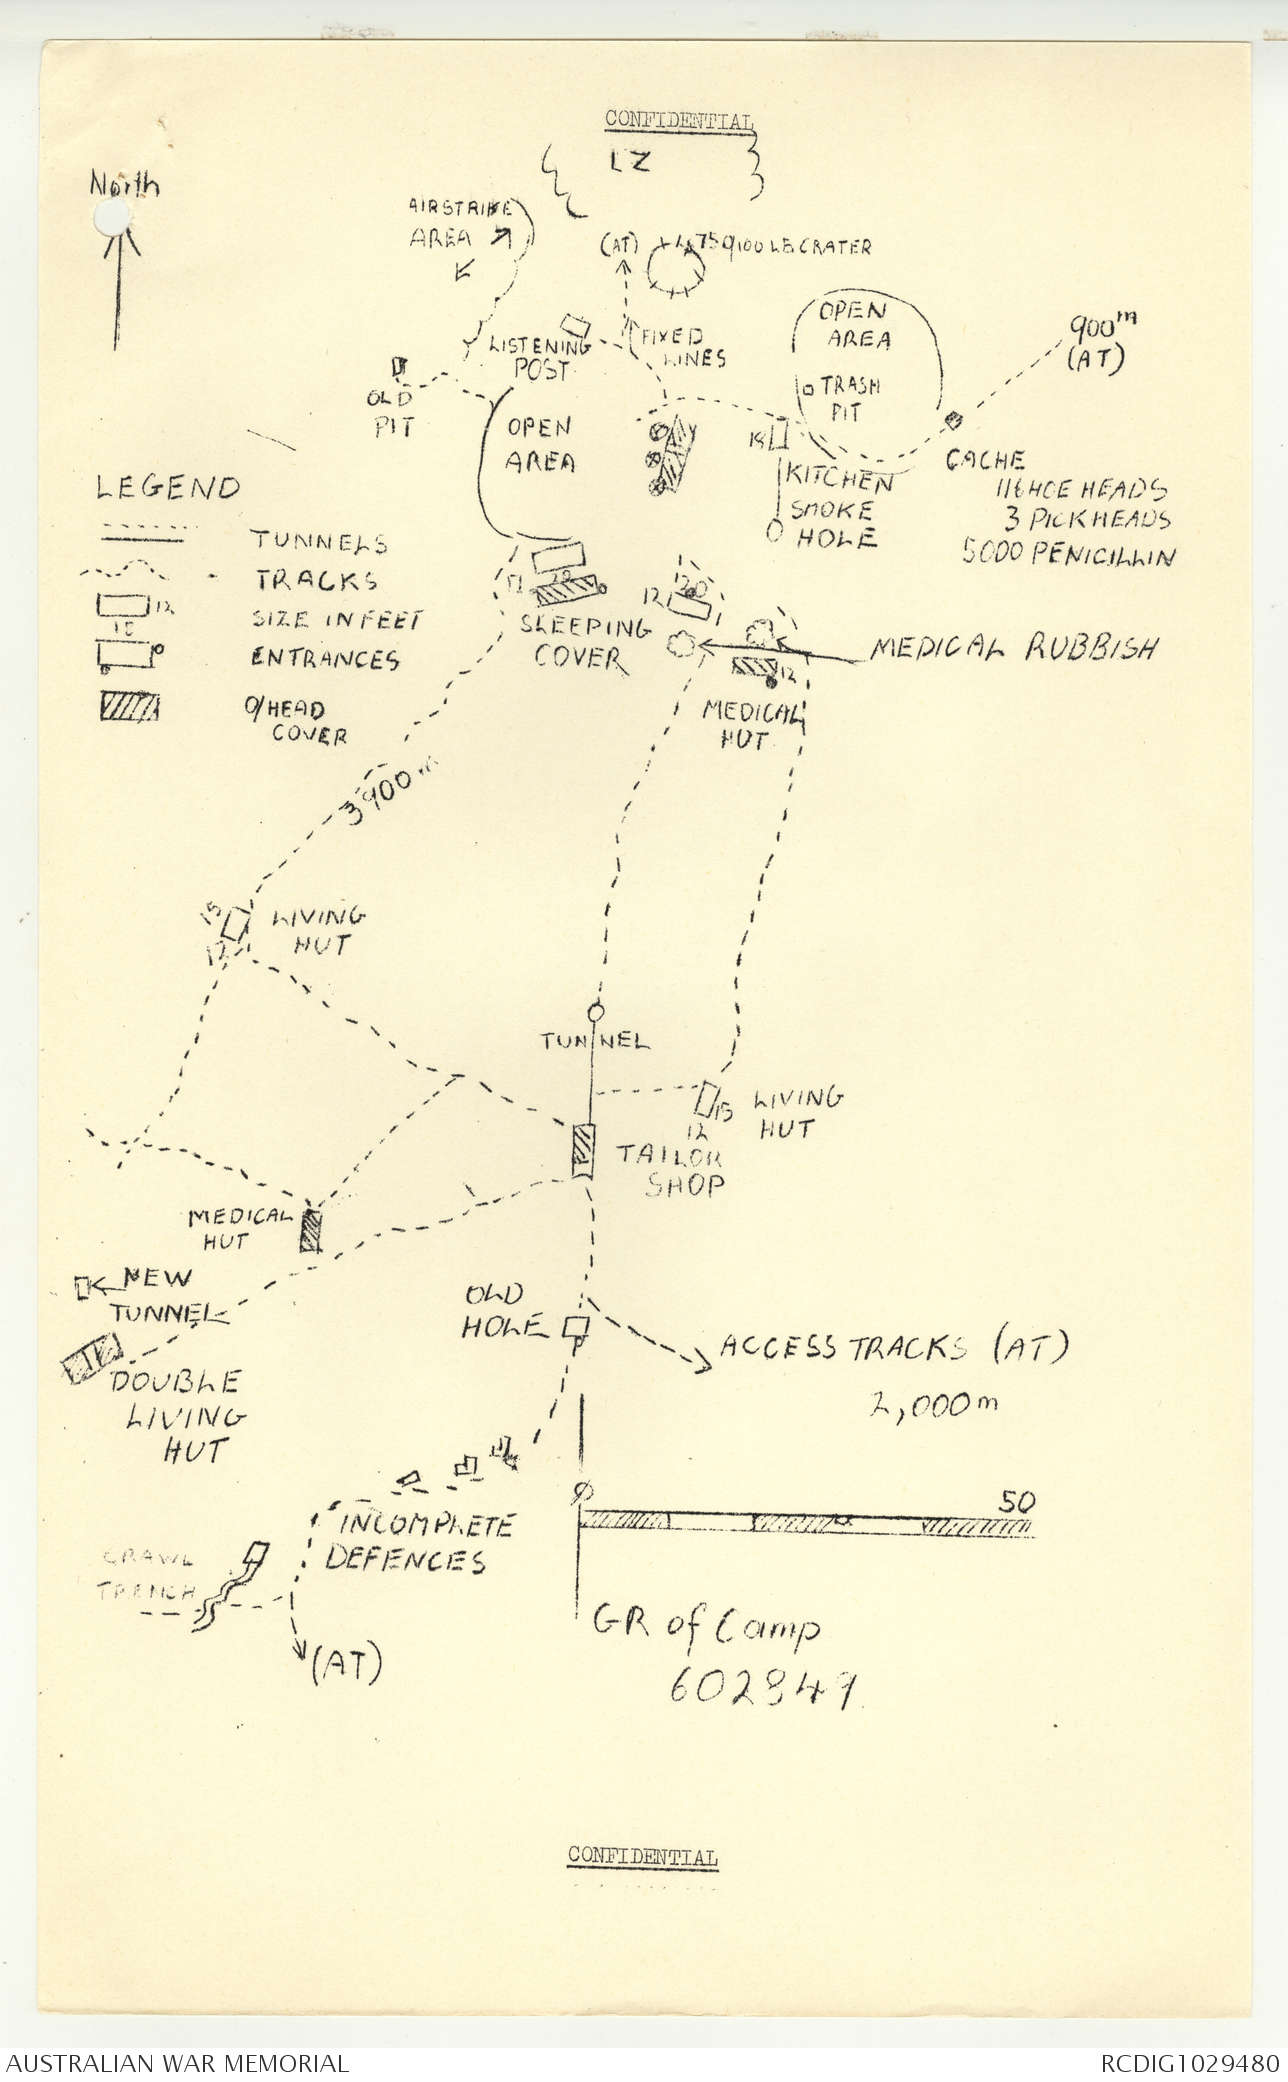 CONFIDENTIAL
LZ
North
AIRSTRIKE
AREA
(AT)
LB CRATER
OPEN
AREA
900m
(AT)
LISTENING
POST
FIXED
LINES
TRASH
PIT
OLD
PIT
OPEN
AREA
CACHE
116 HOE HEADS
3 PICK HEADS
5000 PENICILLIN
KITCHEN
SMOKE
HOLE
LEGEND
TUNNELS
TRACKS
12
SIZE IN FEET
ENTRANCES
O/HEAD
COVER
20
SLEEPING
COVER
12
20
MEDICAL RUBBISH
12
MEDICAL
HUT
3900m
15
12
LIVING
HUT
TUNNEL
15
12
LIVING
HUT
TAILOR
SHOP
MEDICAL
HUT
NEW
TUNNEL
OLD
HOLE
DOUBLE
LIVING
HUT
ACCESS TRACKS (AT)
2,000m
50
INCOMPLETE
DEFENCES
CRAWL
TRENCH
(AT)
GR of Camp
602849
CONFIDENTIAL
AUSTRALIAN WAR MEMORIAL
RCDIG1029480